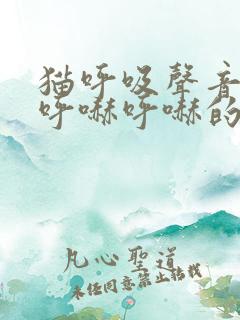 猫呼吸聲音
呼嚇呼嚇的
凡心聖道
未经同意禁止转载